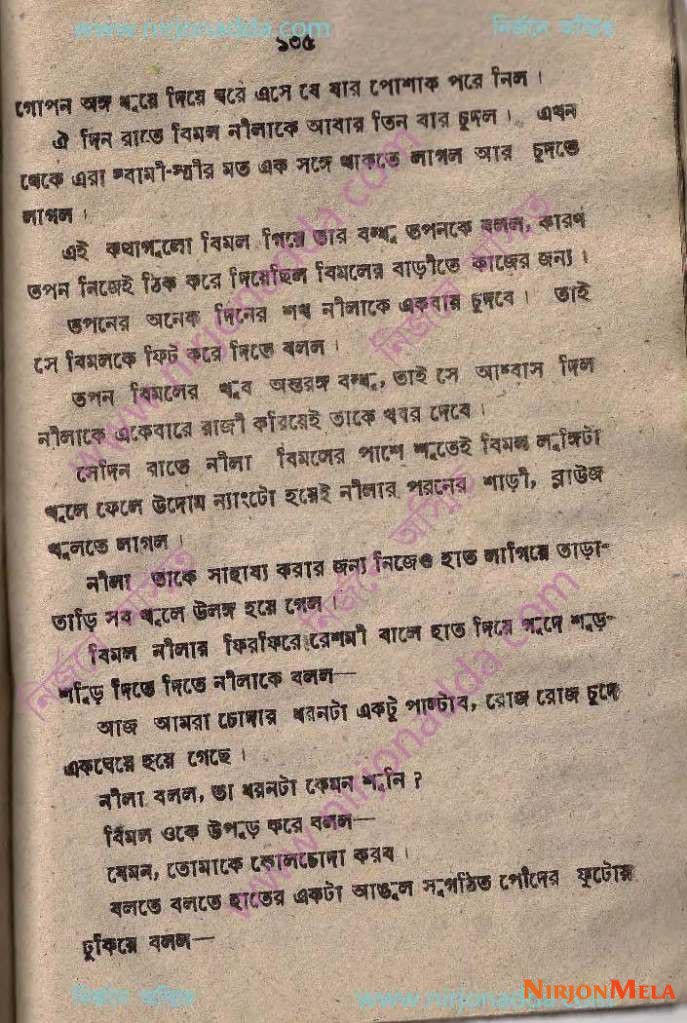 www.nirjonadda.com
নির্জনে অস্মিত
১৩৫
গোপন অঙ্গ ধুয়ে দিয়ে ঘরে এসে যে যার পোশাক পরে নিল।
ঐ দিন রাতে বিমল নীলাকে আবার তিন বার চুদল। এখন
থেকে এরা স্বামী-স্ত্রীর মত এক সঙ্গে থাকতে লাগল আর চুদতে
লাগল।
এই কথাগুলো বিমল গিয়ে তার বন্ধু তপনকে বলল, কারণ
তপন নিজেই ঠিক করে দিয়েছিল বিমলের বাড়ীতে কাজের জন্য।
তপনের অনেক দিনের শখ নীলাকে একবার চুদবে। তাই
সে বিমলকে ফিট করে দিতে বলল।
তপন বিমলের খুব অন্তরঙ্গ বন্ধু, তাই সে আশ্বাস দিল
নীলাকে একেবারে রাজী করিয়েই তাকে খবর দেবে।
সেদিন রাতে নীলা বিমলের পাশে শুতেই বিমল লুঙ্গিটা
খুলে ফেলে উদোম ন্যাংটো হয়েই নীলার পরনের শাড়ী, ব্লাউজ
খুলতে লাগল।
নীলা তাকে সাহায্য করার জন্য নিজেও হাত লাগিয়ে তাড়া-
তাড়ি সব খুলে উলঙ্গ হয়ে গেল।
বিমল নীলার ফিরফিরে রেশমী বালে হাত দিয়ে গুদে শুড়-
শুড়ি দিতে দিতে নীলাকে বলল—
আজ আমরা চোদার ধরনটা একটু পাল্টাব, রোজ রোজ চুদে
একঘেয়ে হয়ে গেছে।
নীলা বলল, তা ধরনটা কেমন শুনি?
বিমল ওকে উপুড় করে বলল—
যেমন, তোমাকে কোলচোদা করব।
বলতে বলতে হাতের একটা আঙুল সুগঠিত পোঁদের ফুটোয়
ঢুকিয়ে বলল—
নির্জনে অস্মিত
www.nirjonadda.com
NIRJONMELA